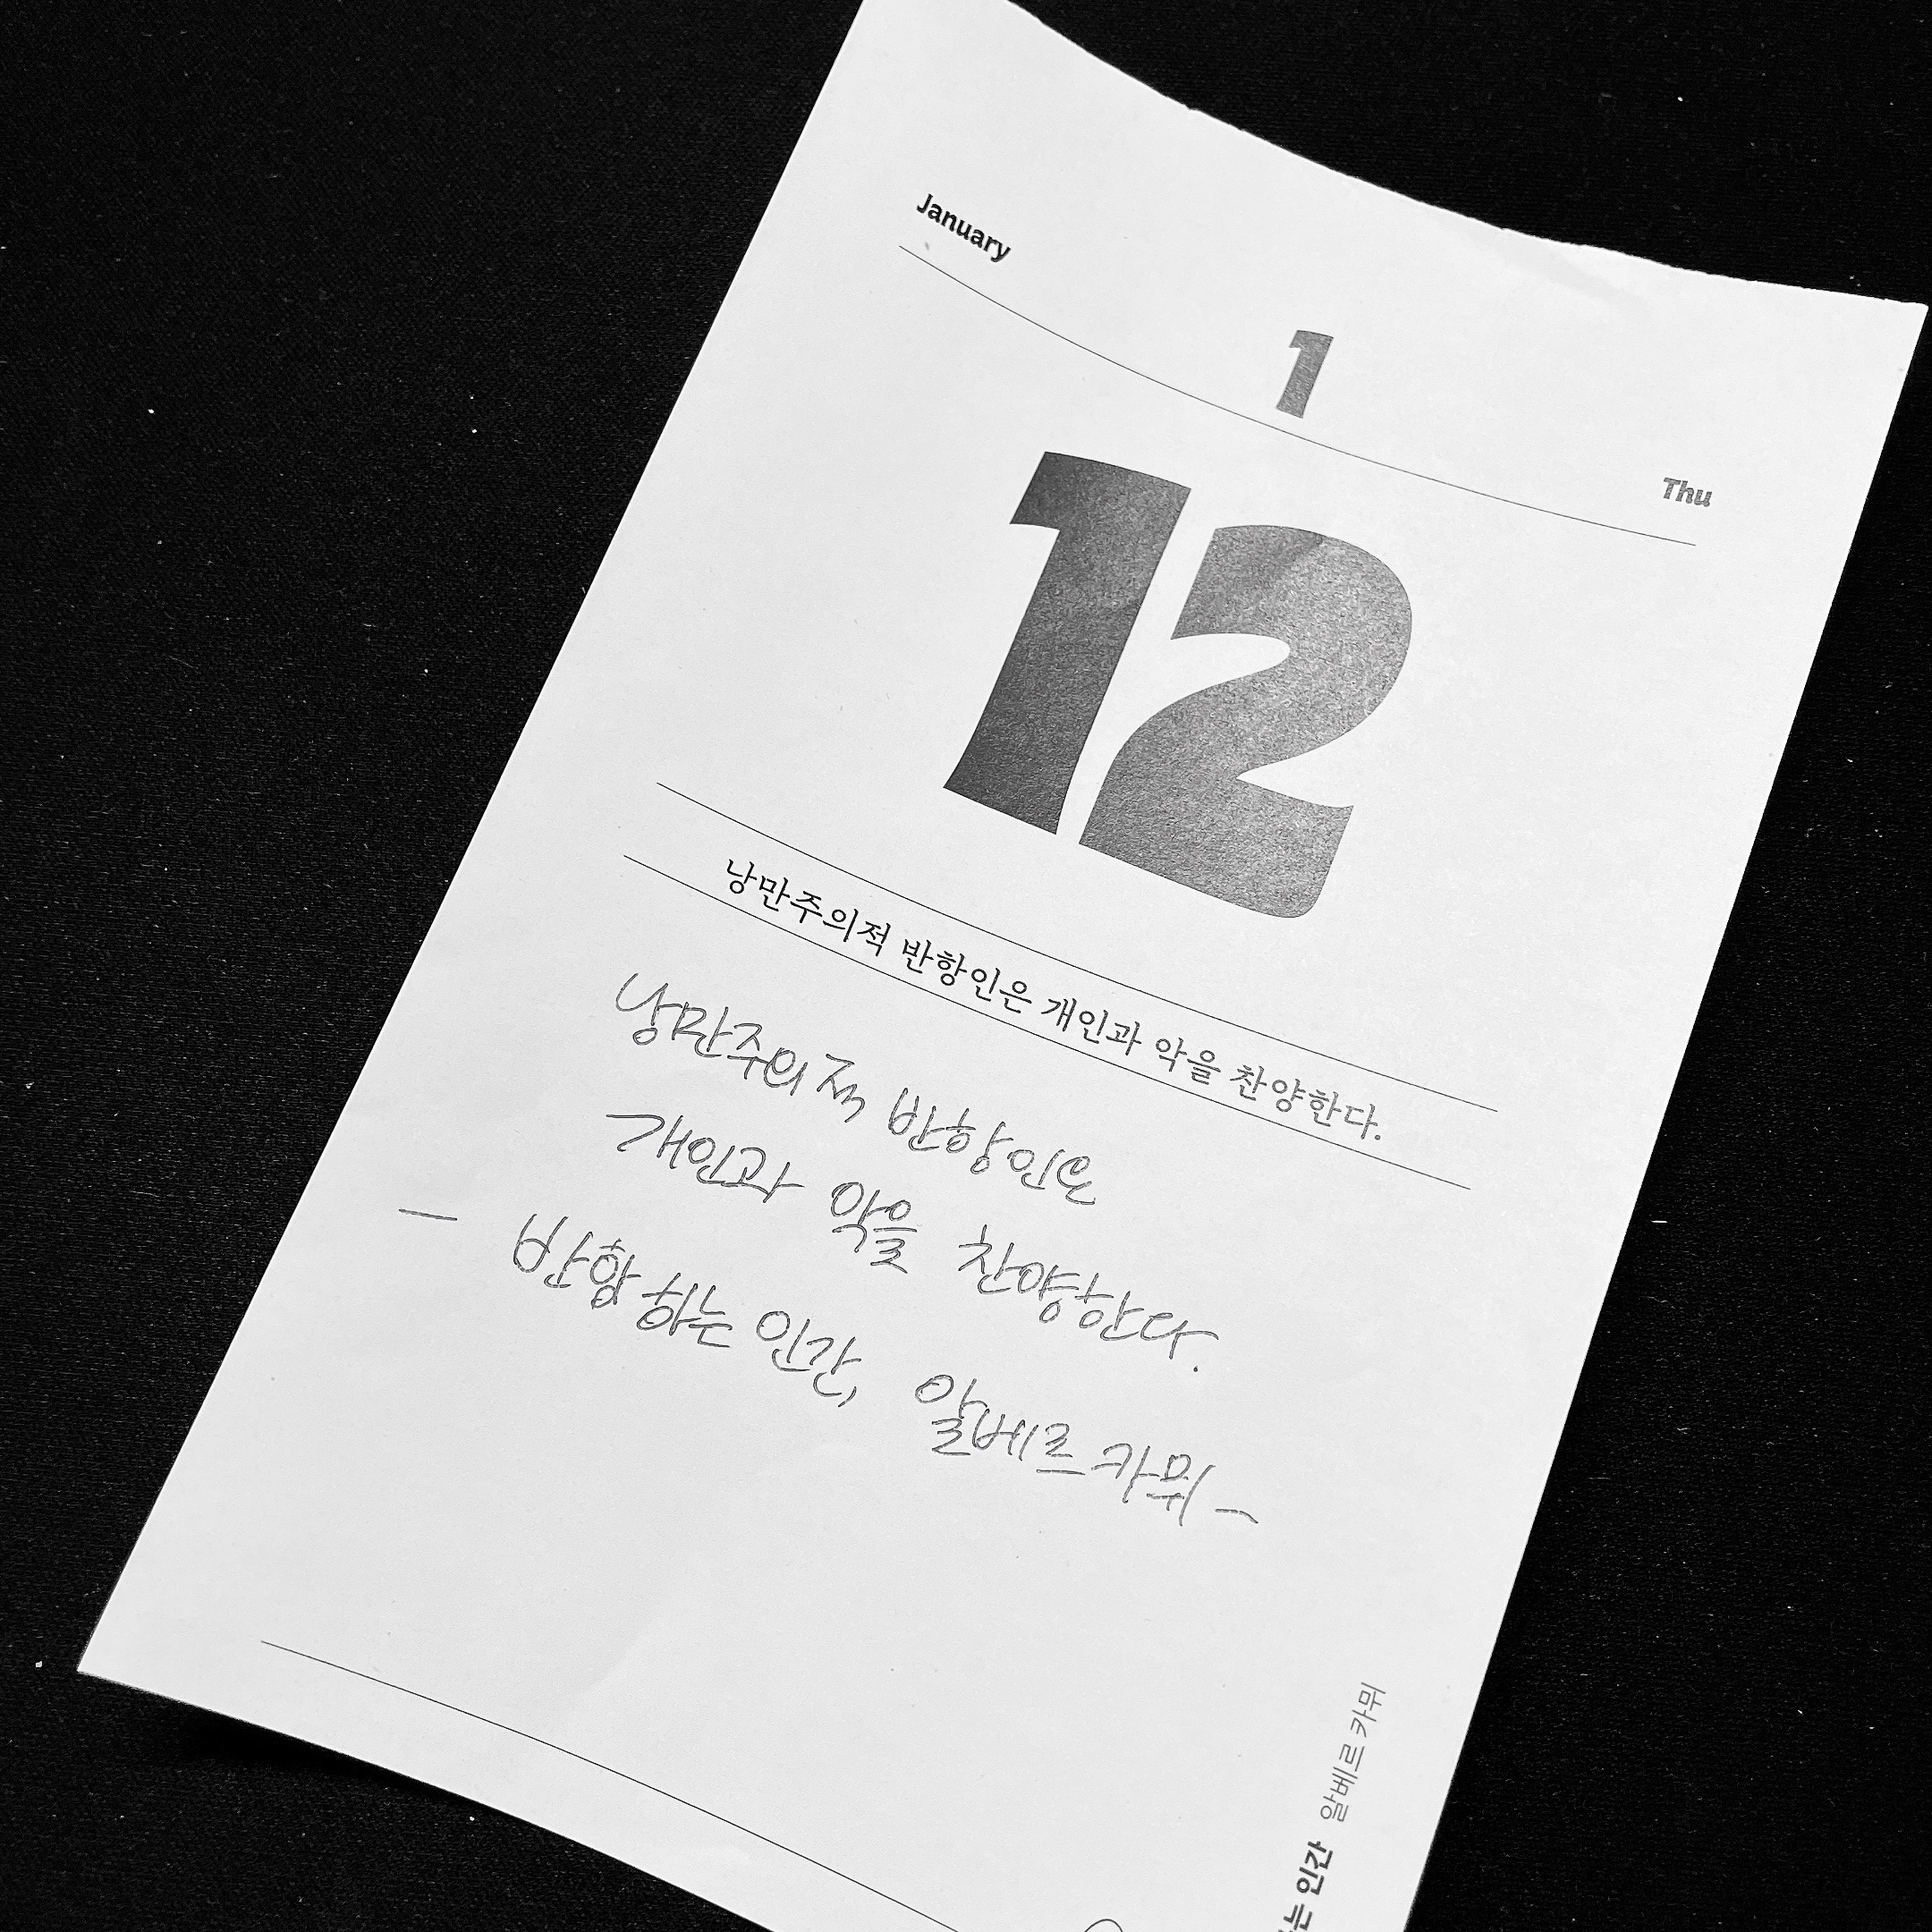 January
1
Thu
12
낭만주의적 반항인은 개인과 악을 찬양한다.
낭만주의적 반항인은
개인과 악을 찬양한다.
— 반항하는 인간, 알베르 카뮈 —
는 인간 알베르 카뮈